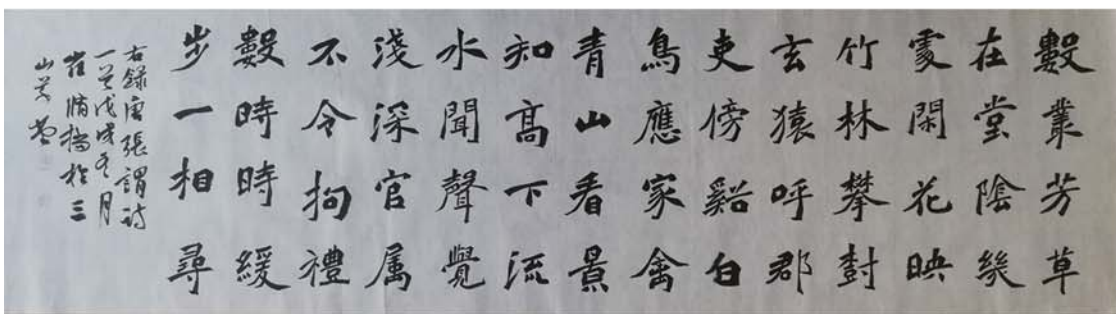 數叢芳草
在堂陰幾
處閑花映
竹林攀樹
玄猿呼郡
吏傍谿白
鳥應家禽
青山看景
知高下流
水聞聲覺
淺深官属
不令拘禮
數時時緩
步一相尋
右錄唐張謂詩
一首戊戌冬月
於三
山